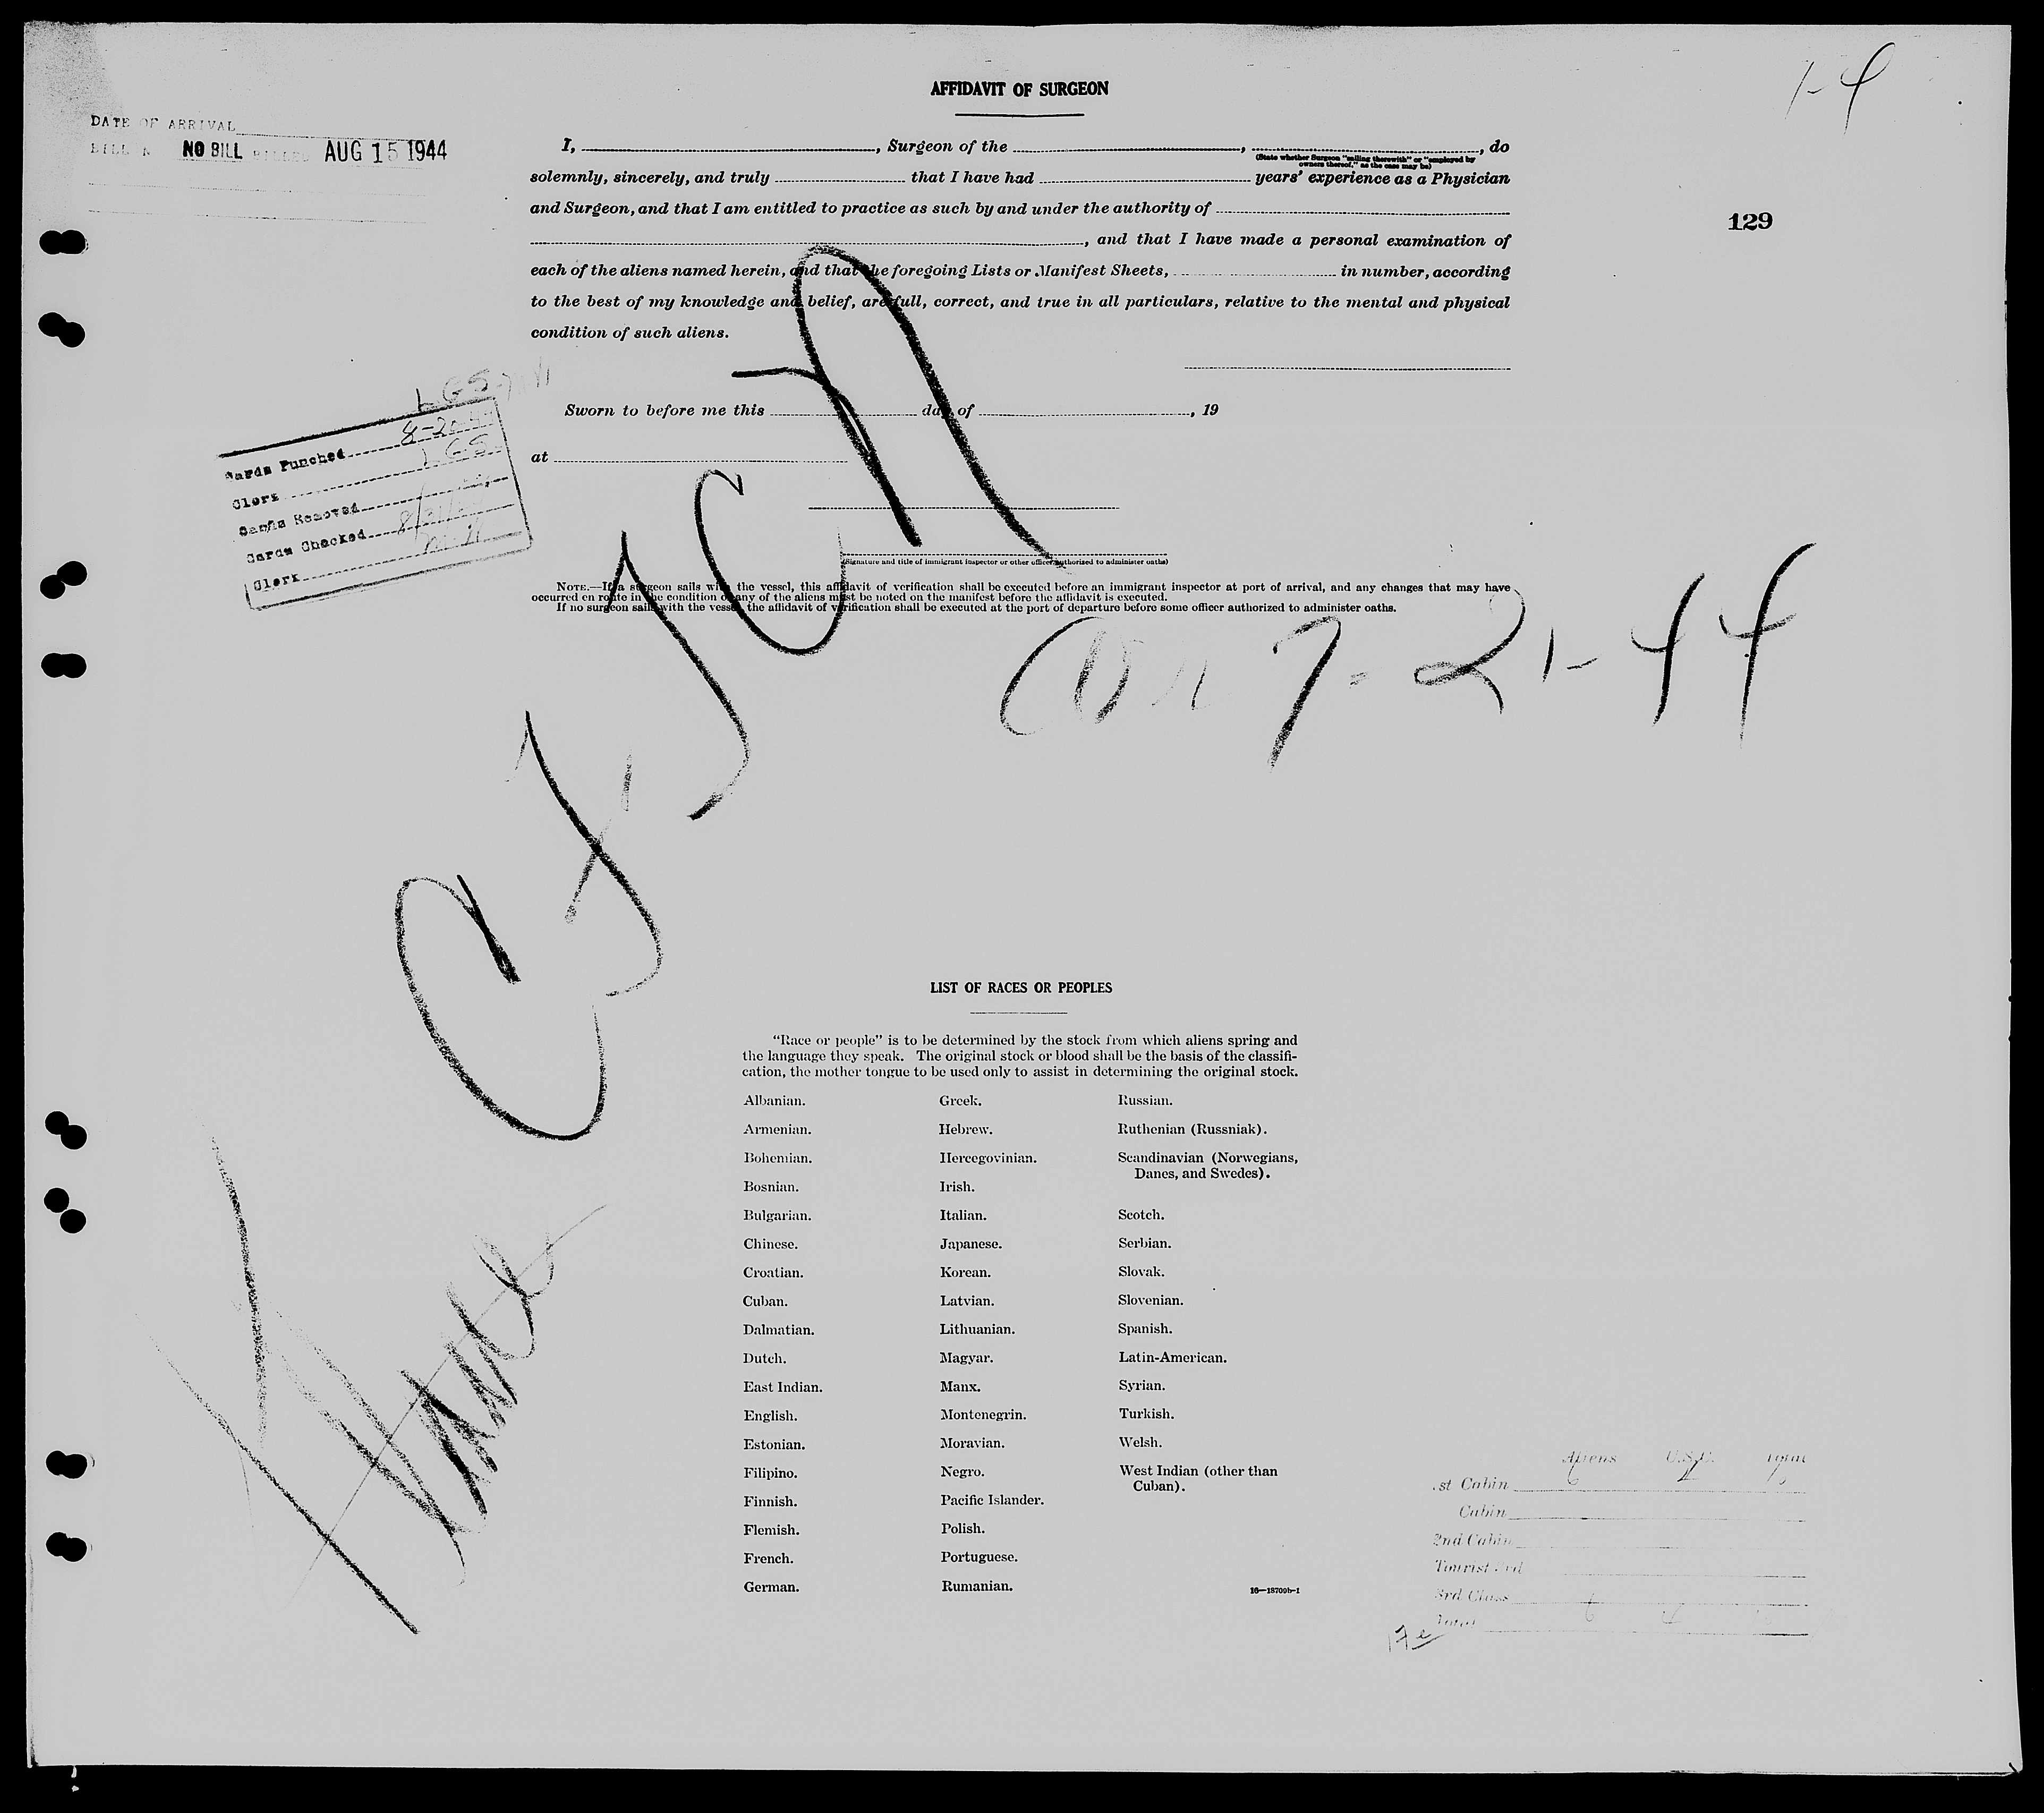 1-4
AFFIDAVIT OF SURGEON
DATE OF ARRIVAL
NO BILL BILLED AUG 15 1944
I, , Surgeon of the , , do
(State whether Surgeon "sailing therewith" or "employed by
owners thereof," as the case may be)
solemnly, sincerely, and truly that I have had years' experience as a Physician
and Surgeon, and that I am entitled to practice as such by and under the authority of
, and that I have made a personal examination of
129
each of the aliens named herein, and that the foregoing Lists or Manifest Sheets, in number, according
to the best of my knowledge and belief, are full, correct, and true in all particulars, relative to the mental and physical
condition of such aliens.
Sworn to before me this day of , 19
at
(Signature and title of immigrant inspector or other officer authorized to administer oaths)
Cards Punched
Clerk LGS
Cards Removed
Cards Checked
Clerk
NOTE.—If a surgeon sails with the vessel, this affidavit of verification shall be executed before an immigrant inspector at port of arrival, and any changes that may have
occurred en route in the condition of any of the aliens must be noted on the manifest before the affidavit is executed.
If no surgeon sails with the vessel, the affidavit of verification shall be executed at the port of departure before some officer authorized to administer oaths.
7-21-44
LIST OF RACES OR PEOPLES
"Race or people" is to be determined by the stock from which aliens spring and
the language they speak. The original stock or blood shall be the basis of the classifi-
cation, the mother tongue to be used only to assist in determining the original stock.
Albanian. Greek. Russian.
Armenian. Hebrew. Ruthenian (Russniak).
Bohemian. Hercegovinian. Scandinavian (Norwegians,
Danes, and Swedes).
Bosnian. Irish.
Bulgarian. Italian. Scotch.
Chinese. Japanese. Serbian.
Croatian. Korean. Slovak.
Cuban. Latvian. Slovenian.
Dalmatian. Lithuanian. Spanish.
Dutch. Magyar. Latin-American.
East Indian. Manx. Syrian.
English. Montenegrin. Turkish.
Estonian. Moravian. Welsh.
Filipino. Negro. West Indian (other than
Cuban).
Finnish. Pacific Islander.
Flemish. Polish.
French. Portuguese.
German. Rumanian. 16—18709b-1
Aliens U.S.C. Total
1st Cabin 6
Cabin
2nd Cabin
Tourist
3rd Class
Total 6 4